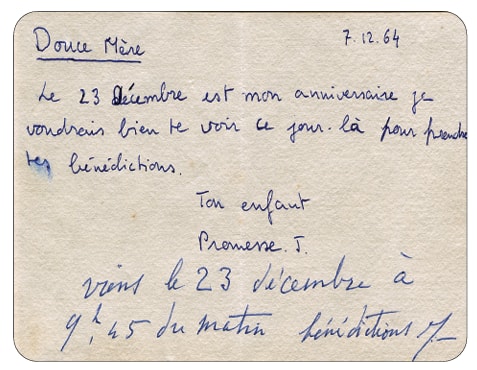 Douce Mère
7.12.64
Le 23 décembre est mon anniversaire je
voudrais bien te voir ce jour-là pour prendre
tes bénédictions.
Ton enfant
Promesse. J.
viens le 23 décembre à
9h,45 du matin bénédictions